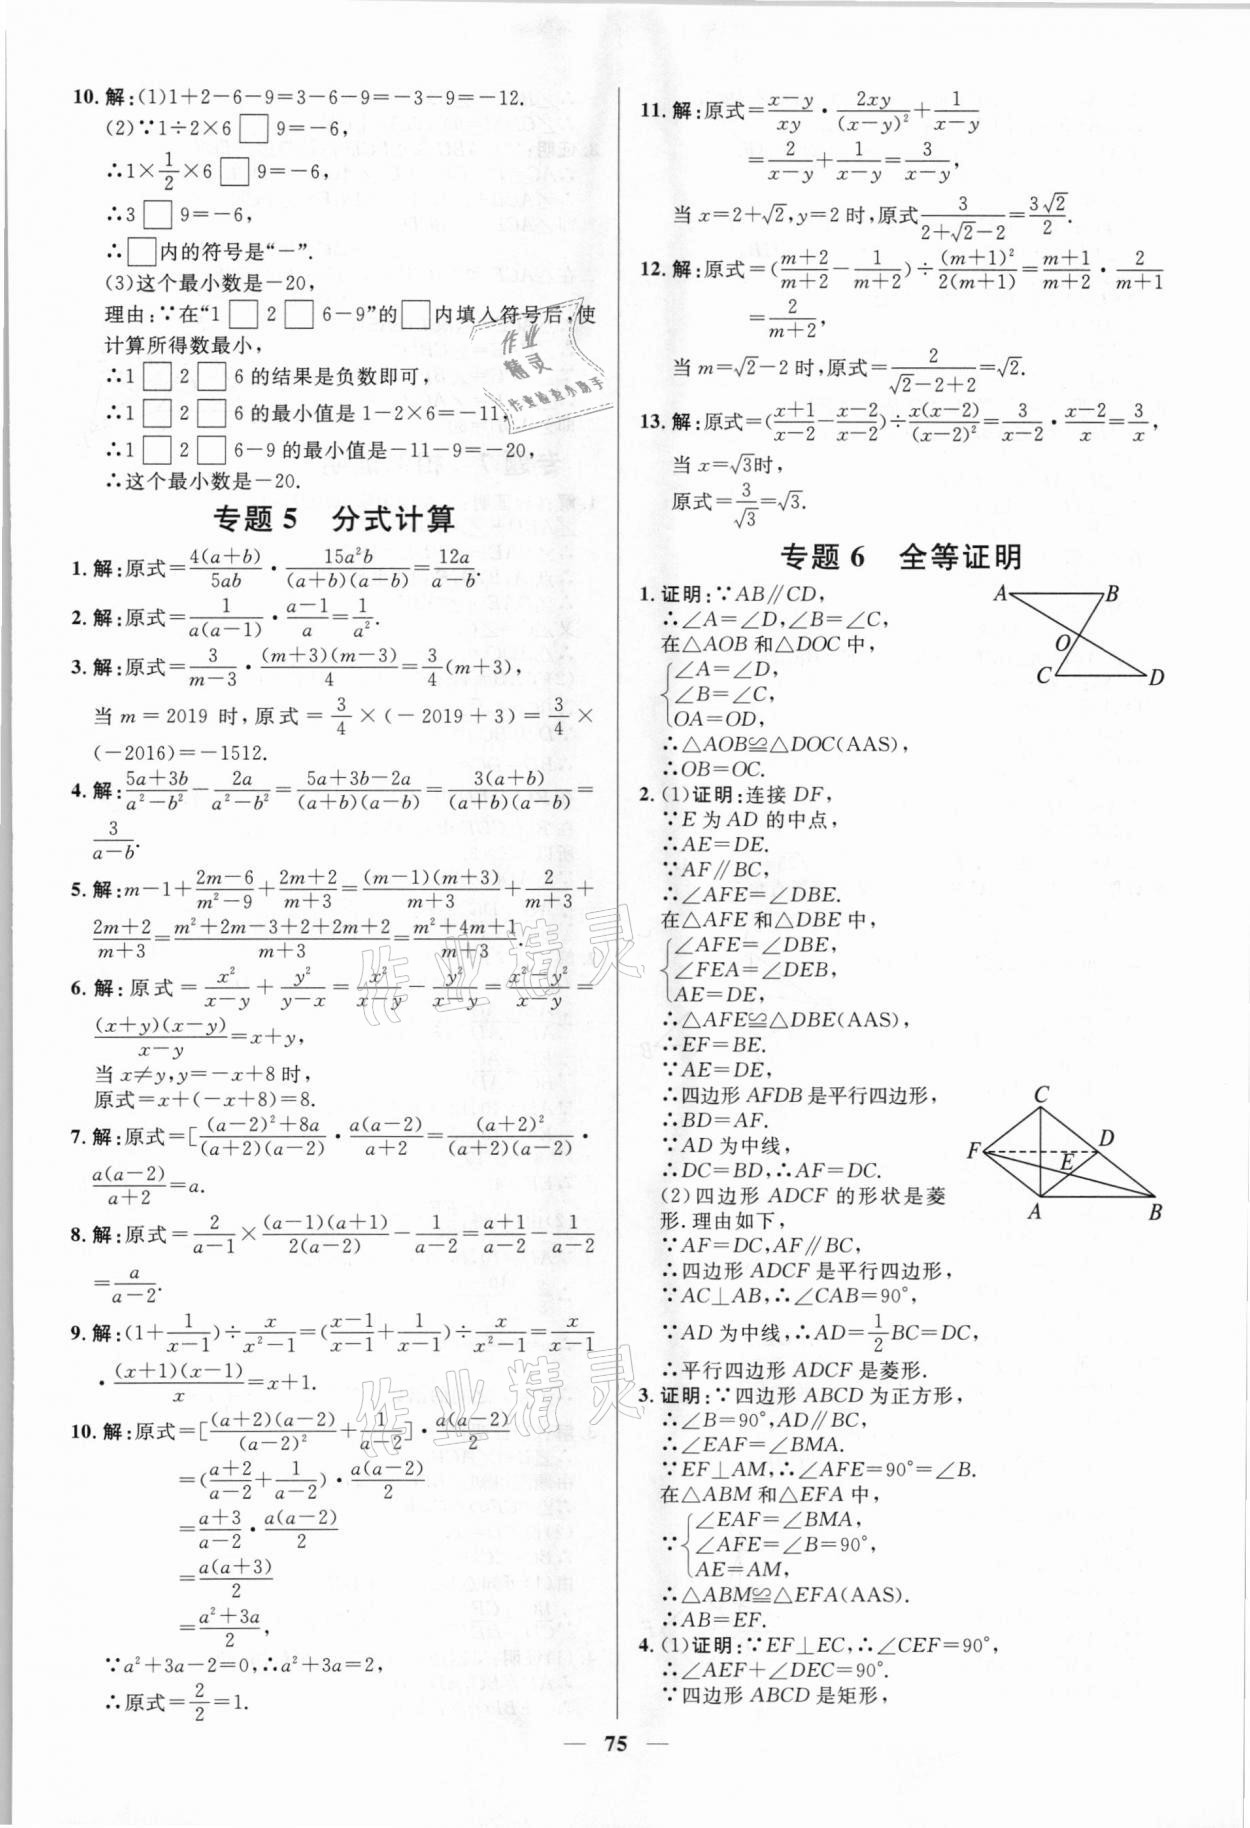 10. 解:(1)1+2-6-9=3-6-9=-3-9=-12.
(2)∵1÷2×6 □ 9=-6,
∴1×1/2×6 □ 9=-6,
∴3 □ 9=-6,
∴□内的符号是“-”.
(3)这个最小数是-20,
理由:∵在“1 □ 2 □ 6-9”的□内填入符号后,使
计算所得数最小,
∴1 □ 2 □ 6 的结果是负数即可,
∴1 □ 2 □ 6 的最小值是 1-2×6=-11,
∴1 □ 2 □ 6-9 的最小值是-11-9=-20,
∴这个最小数是-20.
专题 5 分式计算
1. 解:原式=4(a+b)/5ab · 15a²b/(a+b)(a-b)=12a/a-b.
2. 解:原式=1/a(a-1) · a-1/a=1/a².
3. 解:原式=3/m-3 · (m+3)(m-3)/4=3/4(m+3),
当 m=2019 时,原式=3/4×(-2019+3)=3/4×
(-2016)=-1512.
4. 解:5a+3b/a²-b² - 2a/a²-b²=5a+3b-2a/(a+b)(a-b)=3(a+b)/(a+b)(a-b)=
3/a-b.
5. 解:m-1+2m-6/m²-9+2m+2/m+3=(m-1)(m+3)/m+3+2/m+3+
2m+2/m+3=m²+2m-3+2+2m+2/m+3=m²+4m+1/m+3.
6. 解:原式=x²/x-y+y²/y-x=x²/x-y-y²/x-y=x²-y²/x-y=
(x+y)(x-y)/x-y=x+y,
当 x≠y,y=-x+8 时,
原式=x+(-x+8)=8.
7. 解:原式=[(a-2)²+8a/(a+2)(a-2) · a(a-2)/a+2=(a+2)²/(a+2)(a-2) ·
a(a-2)/a+2=a.
8. 解:原式=2/a-1×(a-1)(a+1)/2(a-2)-1/a-2=a+1/a-2-1/a-2
=a/a-2.
9. 解:(1+1/x-1)÷x/x²-1=(x-1/x-1+1/x-1)÷x/x²-1=x/x-1
· (x+1)(x-1)/x=x+1.
10. 解:原式=[(a+2)(a-2)/(a-2)²+1/a-2] · a(a-2)/2
=(a+2/a-2+1/a-2) · a(a-2)/2
=a+3/a-2 · a(a-2)/2
=a(a+3)/2
=a²+3a/2,
∵a²+3a-2=0,∴a²+3a=2,
∴原式=2/2=1.
11. 解:原式=x-y/xy · 2xy/(x-y)²+1/x-y
=2/x-y+1/x-y=3/x-y,
当 x=2+√2,y=2 时,原式3/2+√2-2=3√2/2.
12. 解:原式=(m+2/m+2-1/m+2)÷(m+1)²/2(m+1)=m+1/m+2 · 2/m+1
=2/m+2,
当 m=√2-2 时,原式=2/√2-2+2=√2.
13. 解:原式=(x+1/x-2-x-2/x-2)÷x(x-2)/(x-2)²=3/x-2 · x-2/x=3/x,
当 x=√3时,
原式=3/√3=√3.
专题 6 全等证明
1. 证明:∵AB∥CD,
∴∠A=∠D,∠B=∠C,
在△AOB 和△DOC 中,
∠A=∠D,
∠B=∠C,
OA=OD,
∴△AOB≌△DOC(AAS),
∴OB=OC.
A B
O
C D
2. (1)证明:连接 DF,
∵E 为 AD 的中点,
∴AE=DE.
∵AF∥BC,
∴∠AFE=∠DBE.
在△AFE 和△DBE 中,
∠AFE=∠DBE,
∠FEA=∠DEB,
AE=DE,
∴△AFE≌△DBE(AAS),
∴EF=BE.
∵AE=DE,
∴四边形 AFDB 是平行四边形,
∴BD=AF.
∵AD 为中线,
∴DC=BD,∴AF=DC.
(2)四边形 ADCF 的形状是菱
形.理由如下,
∵AF=DC,AF∥BC,
∴四边形 ADCF 是平行四边形,
∵AC⊥AB,∴∠CAB=90°,
∵AD 为中线,∴AD=1/2BC=DC,
∴平行四边形 ADCF 是菱形.
C
F D
E
A B
3. 证明:∵四边形 ABCD 为正方形,
∴∠B=90°,AD∥BC,
∴∠EAF=∠BMA.
∵EF⊥AM,∴∠AFE=90°=∠B.
在△ABM 和△EFA 中,
∠EAF=∠BMA,
∵ ∠AFE=∠B=90°,
AE=AM,
∴△ABM≌△EFA(AAS).
∴AB=EF.
4. (1)证明:∵EF⊥EC,∴∠CEF=90°,
∴∠AEF+∠DEC=90°.
∵四边形 ABCD 是矩形,
— 75 —
作业
精灵
作业检查小助手
作业精灵
作业精灵